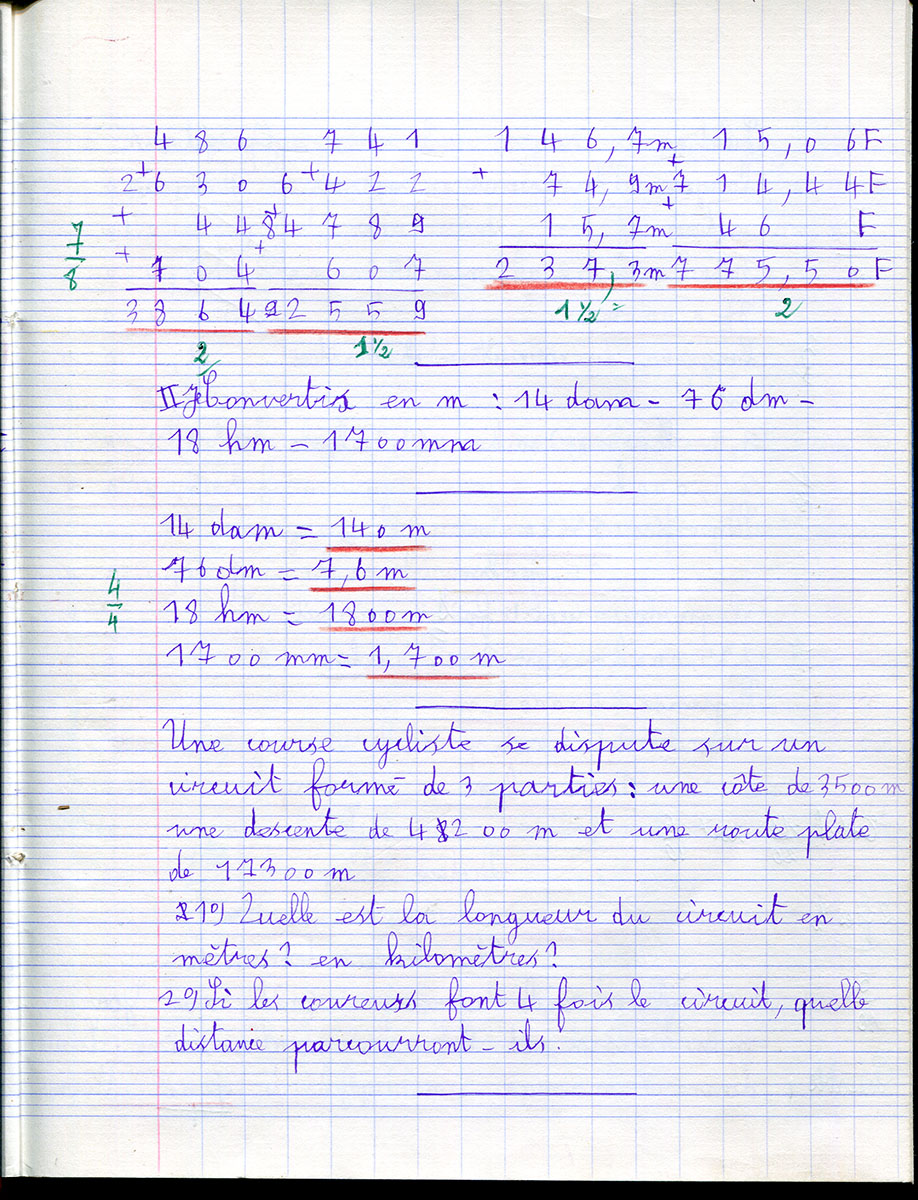 486 741 146,7m 15,06F
+ 2630 + 6422 + 74,9m + 714,44F
+ 44 + 84789 15,7m + 46 F
7/8
+ 704 + 607 237,3m 775,50F
3864 92559 1½ 2
2 1½
II Convertis en m : 14 dam - 76 dm -
18 hm - 1700mm
14 dam = 140 m
76 dm = 7,6 m
4/4
18 hm = 1800m
1700 mm = 1,700 m
Une course cycliste se dispute sur un
circuit formé de 3 parties : une côte de 3500m
une descente de 4200 m et une route plate
de 17300m
1°) Quelle est la longueur du circuit en
mètres ? en kilomètres ?
2°) Si les coureurs font 4 fois le circuit, quelle
distance parcourront-ils ?